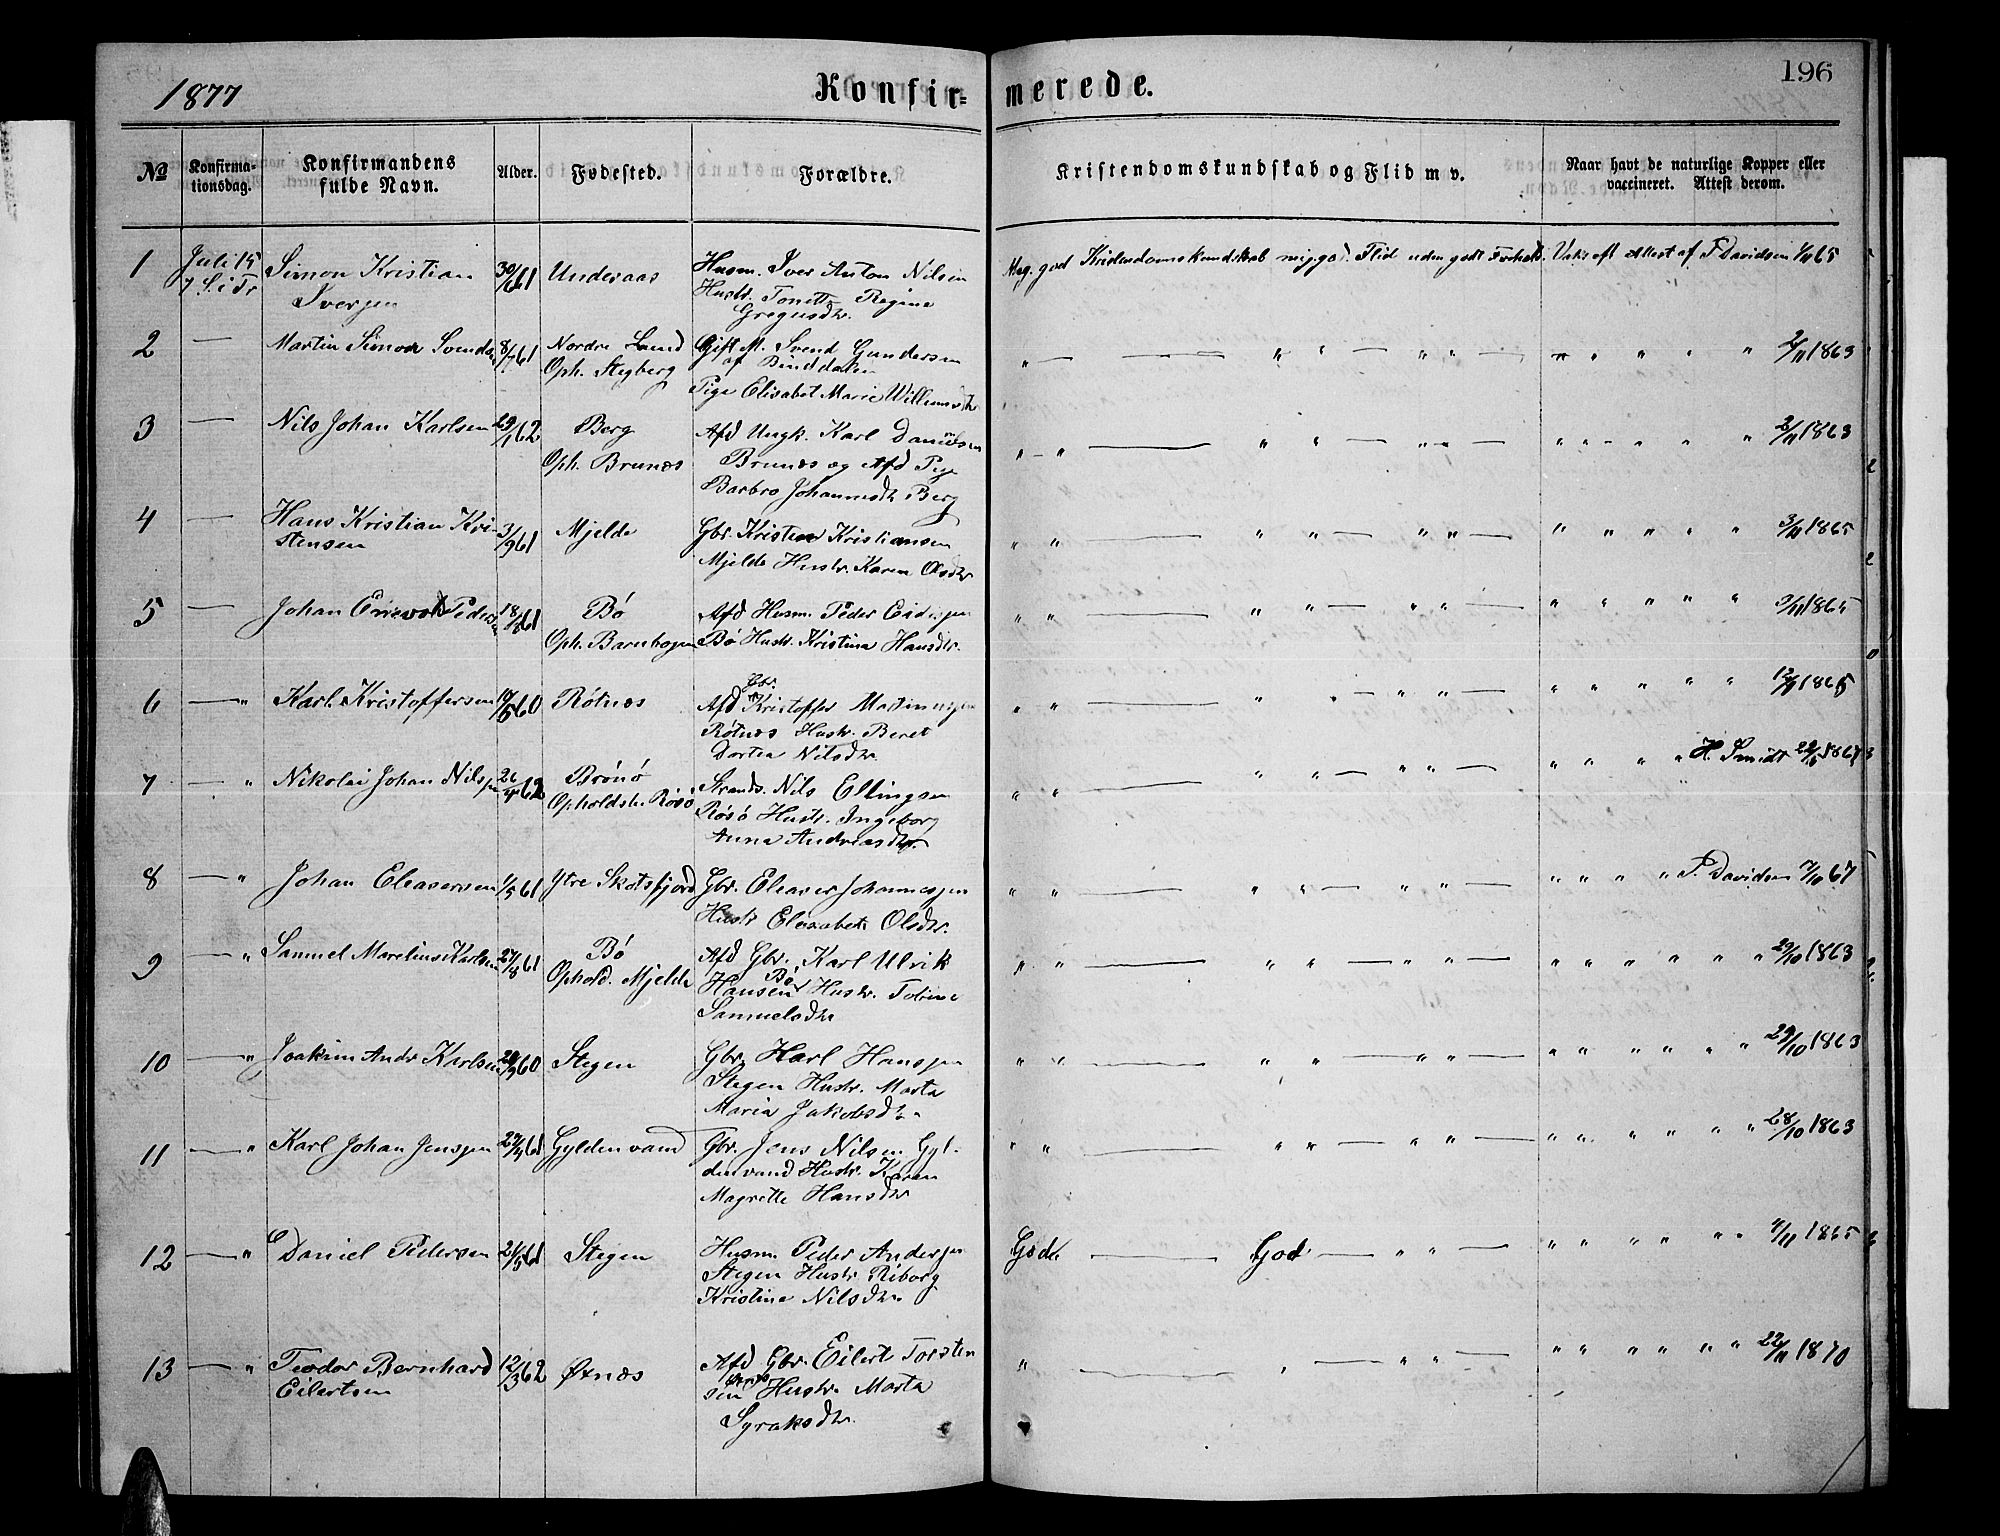 1877
Konfir=
merede.
196
No
Konfirma-
tionsdag.
Konfirmandens
fulde Navn.
Alder.
Fødested.
Forældre.
Kristendomskundskab og Flid m v.
Naar havt de naturlige Kopper eller
vaccineret. Attest derom.
1
Juli 15
7 S. i Tr
Simon Kristian
Iversen
30/6 61
Undersaas
Husm. Iver Anton Nilsen
Hustr. Tonette Regine
Gregusdtr.
Meg. god Kristendomskundskab meg. god Flid uden godt Forhold. Vakc eft Attest af F. Davidsen 1/11 65
2
—
Martin Simon Svendsen
8/7 61
Nordre Lund
Oph. Stegberg
Gift M. Svend Gundersen
af Binddalen
Pige Elisabet Marie Willumsdtr
" — " " — " " — " " " " " 2/11 1863
3
—
Nils Johan Karlsen
29/1 62
Berg
Oph. Brunæs
Afd Ungk. Karl Danielsen
Brunæs og Afd Pige
Barbro Johannesdtr Berg
" " — " " — " " — " " " " " 2/11 1863
4
—
Hans Kristian Kri-
stensen
3/9 61
Mjelde
Gbr. Kristen Kristiansen
Mjelde Hustr. Karen Olsdtr
" " — " " — " " — " " " " " 3/11 1865
5
—
Johan Pedersen
18/8 61
Bø
Oph. Barnhogen
Afd Husm. Peder
Bø Hustr. Kristina Hansdtr.
" " — " " — " " — " " " " " 3/11 1865
6
— "
Karl Kristoffersen
19/5 60
Røtnæs
Gbr.
Afd Kristoffer Martinusen
Røtnæs Hustr. Beret
Dortea Nilsdtr.
" " — " " — " " — " " " " " 12/11 1865
7
— "
Nikolai Johan Nilssen
26/4 62
Brønø
Opholdst. Røsø
Strands. Nils Ellingsen
Røsø Hustr. Ingeborg
Anna Andreasdtr
" " — " " — " " — " " " " H. Smidt
8
— "
Johan Eleasersen
1/5 61
Ytre Skotsfjord
Gbr. Eleaser Johannessen
Hustr Elisabet Olsdtr.
" " — " " — " " — " " " " F. Davidsen 7/10 67
9
— "
Samuel Marelius Karlsen
27/8 61
Bø
Ophold. Mjelde
Afd Gbr. Karl Ulrik
Bø
Hansen Hustr. Tobine
Samuelsdtr
" " — " " — " " — " " " " " " 29/10 1863
10
— "
Joakim Andr Karlsen
28/9 60
Stegen
Gbr. Karl Hanssen
Stegen Hustr. Marta
Maria Jakobsdtr
" " — " " — " " — " " " " " " 29/10 1863
11
— "
Karl Johan Jenssen
27/4 61
Gyldenvand
Gbr. Jens Nilsen Gyl-
denvand Hustr. Karen
Magrette Hansdtr
" " — " " — " " — " " " " " " 28/10 1863
12
— "
Daniel Pedersen
21/5 61
Stegen
Husm Peder Andersen
Stegen Hustr Riborg
Kristine Nilsdtr.
God. — God — " " — " " " " " " 4/11 1865
13
— "
Teodor Bernhard
Eilertsen
12/3 62
Ørnæs
Afd Gbr. Eilert Torsten
Ørnæs
sen Hustr. Marta
Syraksdtr.
" — " — " " — " " " " " " 22/11 1870